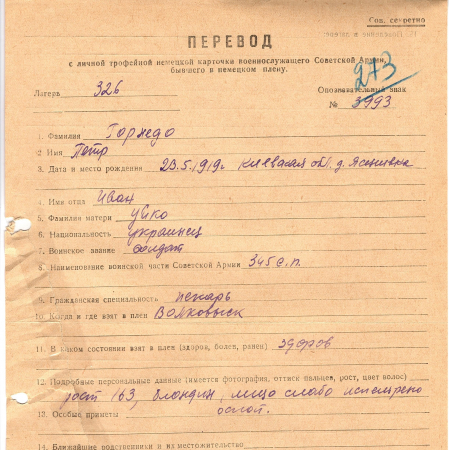 Сов. секретно
ПЕРЕВОД
с личной трофейной немецкой карточки военнослужащего Советской Армии,
бывшего в немецком плену.
273
Лагерь 326
Опознавательный знак
№ 3993
1. Фамилия Торнедо
2 Имя Петр
3. Дата и место рождения 23.5.1919г Киевская обл. д. Ясенивка
4. Имя отца Иван
5. Фамилия матери Уйко
6. Национальность украинец
7. Воинское звание солдат
8. Наименование воинской части Советской Армии 345 с.п.
9. Гражданская специальность пекарь
10. Когда и где взят в плен Волковыск
11. В каком состоянии взят в плен (здоров, болен, ранен) здоров
12. Подробные персональные данные (имеется фотография, оттиск пальцев, рост, цвет волос)
рост 163, блондин, лицо слабо
13. Особые приметы оспой.
14. Ближайшие родственники и их местожительство